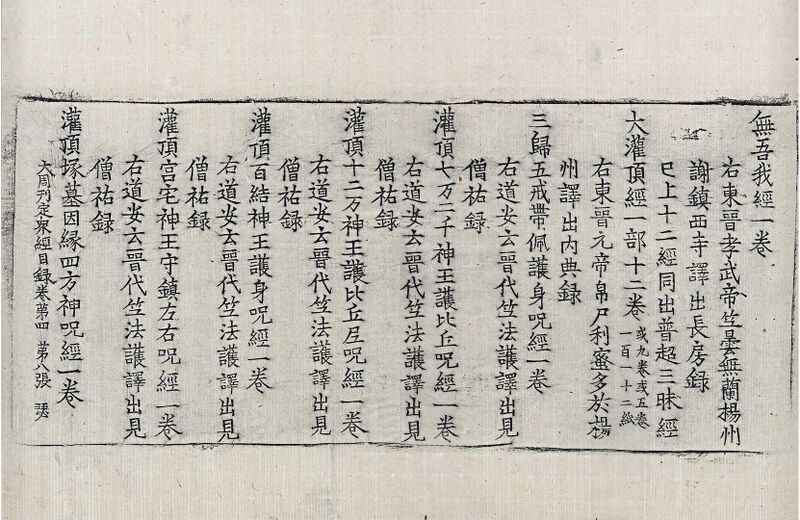 無吾我經一卷
右東晉孝武帝竺曇無蘭楊州
謝鎮西寺譯出長房錄
已上十二經同出普超三昧經
大灌頂經一部十二卷或九卷或五卷
一百一十二紙
右東晉元帝帛尸利蜜多於楊
州譯出內典錄
三歸五戒帶佩護身呪經一卷
右道安云晉代竺法護譯出見
僧祐録
灌頂七万二千神王護比丘呪經一卷
右道安云晉代竺法護譯出見
僧祐録
灌頂十二万神王護比丘尼呪經一卷
右道安云晉代竺法護譯出見
僧祐録
灌頂百結神王護身呪經一卷
右道安云晉代竺法護譯出見
僧祐録
灌頂宮宅神王守鎮左右呪經一卷
右道安云晉代竺法護譯出見
僧祐録
灌頂塚墓因縁四方神呪經一卷
大周刊定衆經目録卷第四 第八張